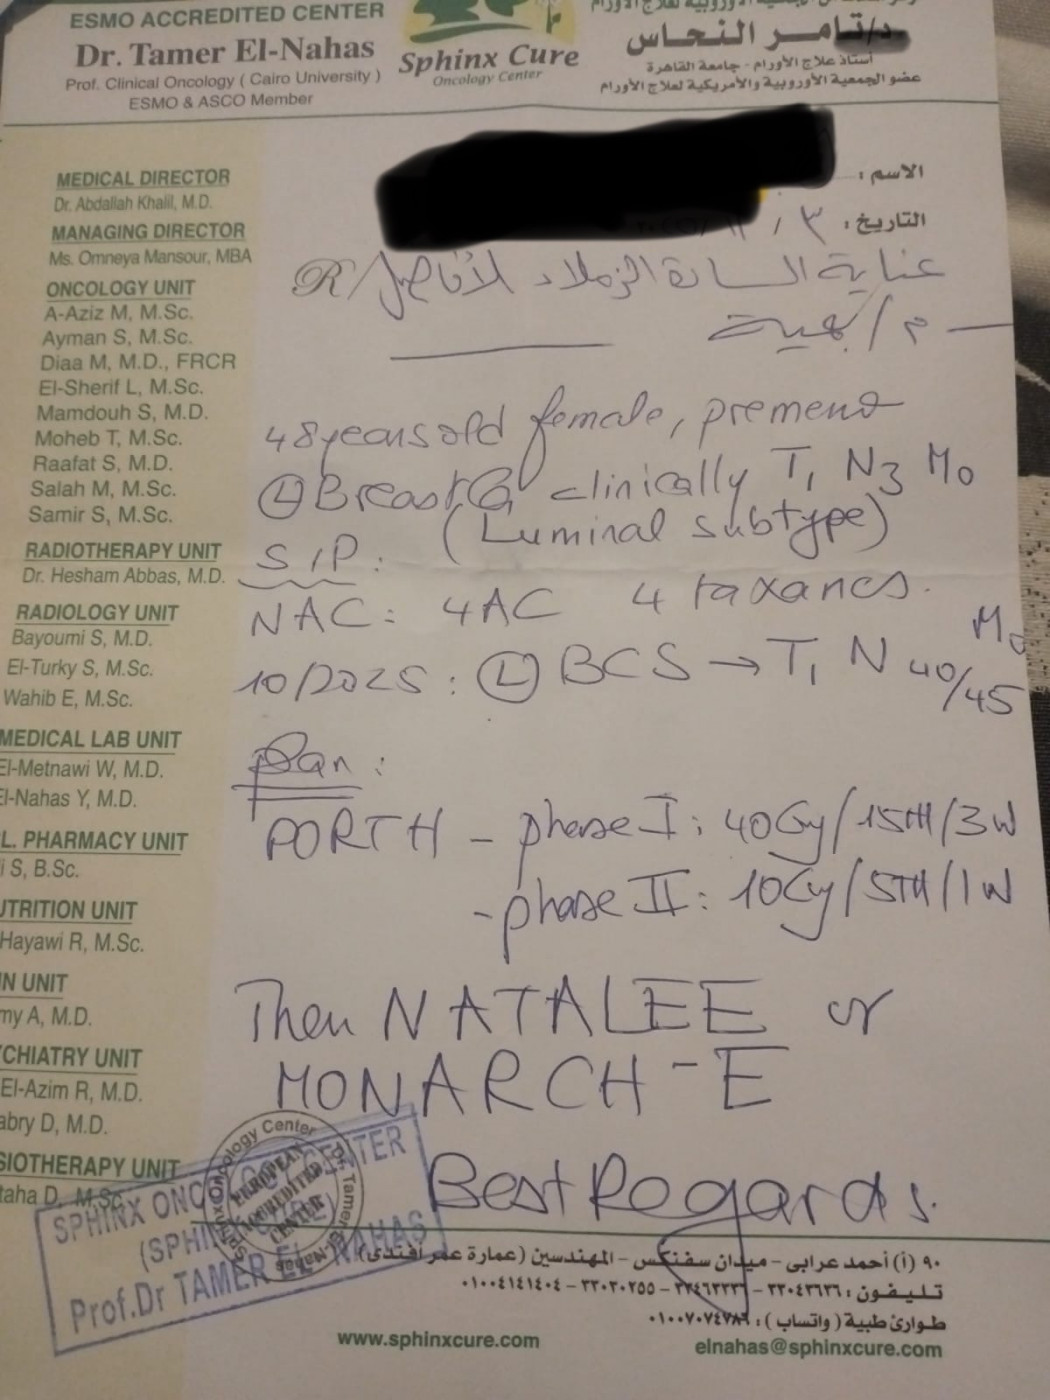 ESMO ACCREDITED CENTER
Dr. Tamer El-Nahas
Prof. Clinical Oncology ( Cairo University )
ESMO & ASCO Member
Sphinx Cure
Oncology Center
تامر النحاس
أستاذ علاج الأورام - جامعة القاهرة
عضو الجمعية الأوروبية والأمريكية لعلاج الأورام
الاسم :
التاريخ : ٣ /
MEDICAL DIRECTOR
Dr. Abdallah Khalil, M.D.
MANAGING DIRECTOR
Ms. Omneya Mansour, MBA
ONCOLOGY UNIT
A-Aziz M, M.Sc.
Ayman S, M.Sc.
Diaa M, M.D., FRCR
El-Sherif L, M.Sc.
Mamdouh S, M.D.
Moheb T, M.Sc.
Raafat S, M.D.
Salah M, M.Sc.
Samir S, M.Sc.
RADIOTHERAPY UNIT
Dr. Hesham Abbas, M.D.
RADIOLOGY UNIT
Bayoumi S, M.D.
El-Turky S, M.Sc.
Wahib E, M.Sc.
MEDICAL LAB UNIT
El-Metnawi W, M.D.
El-Nahas Y, M.D.
L. PHARMACY UNIT
i S, B.Sc.
UTRITION UNIT
Hayawi R, M.Sc.
IN UNIT
my A, M.D.
CHIATRY UNIT
El-Azim R, M.D.
abry D, M.D.
SIOTHERAPY UNIT
taha D, M.Sc.
R/ عناية السادة الزملاء الأفاضل
م / بهية
48 years old female, premeno
(L) Breast Ca clinically T1 N3 M0
(Luminal subtype)
S/P:
NAC: 4AC 4 taxanes.
10/2025: (L) BCS → T1 N 40/45 M0
plan:
PORTH - phase I: 40Gy/15th/3w
- phase II: 10Gy/5TH/1W
Then NATALEE or
MONARCH-E
Best Regards.
SPHINX ONCOLOGY CENTER
(SPHINX CURE)
Prof.Dr TAMER EL-NAHAS
EUROPEAN
ACCREDITED
CENTER
٩٠ (أ) أحمد عرابى - ميدان سفنكس - المهندسين (عمارة عمر أفندى)
تليفون : ٣٣٠٤٣٦٣٦ - ٣٣٤٦٣٣٣٦ - ٣٣٠٣٠٢٥٥ - ٠١٠٠٤١٤١٤٠٤
طوارئ طبية ( واتساب ) : ٠١٠٠٧٠٧٤٧٨٩
www.sphinxcure.com
elnahas@sphinxcure.com